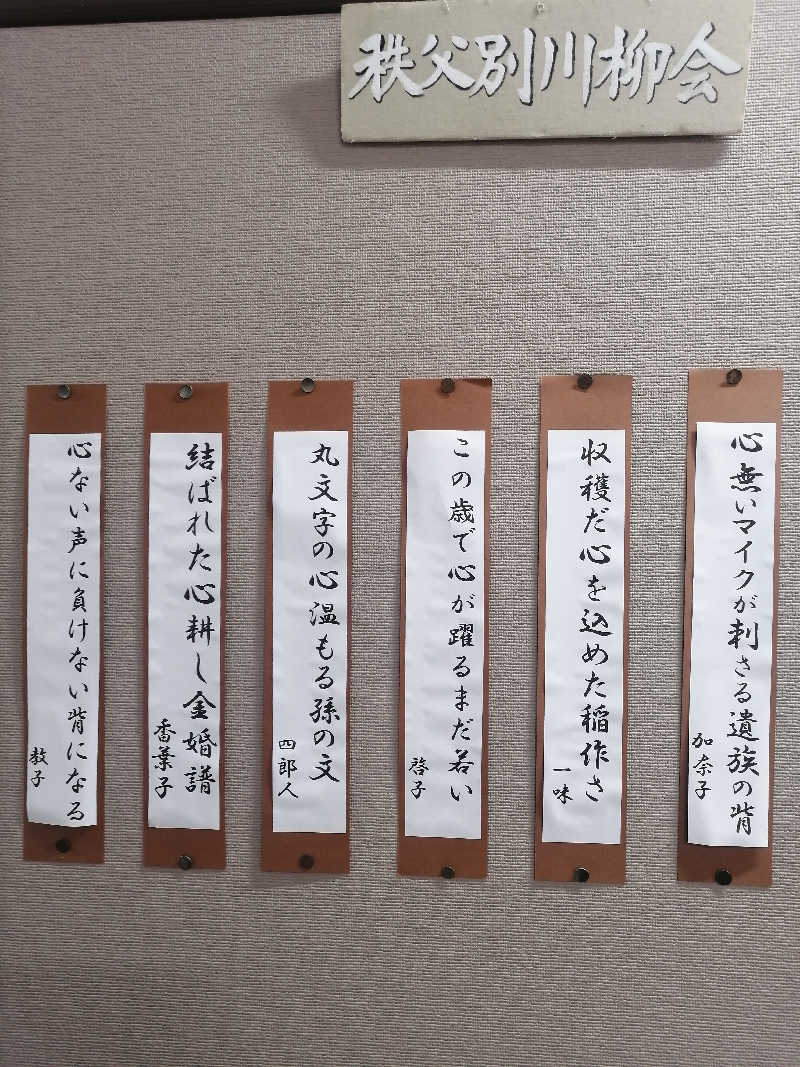 秩父別川柳会
心無いマイクが刺さる遺族の背
加奈子
収穫だ心を込めた稲作さ
一味
この歳で心が躍るまだ若い
啓子
丸文字の心温もる孫の文
四郎人
結ばれた心耕し金婚譜
香葉子
心ない声に負けない背になる
教子